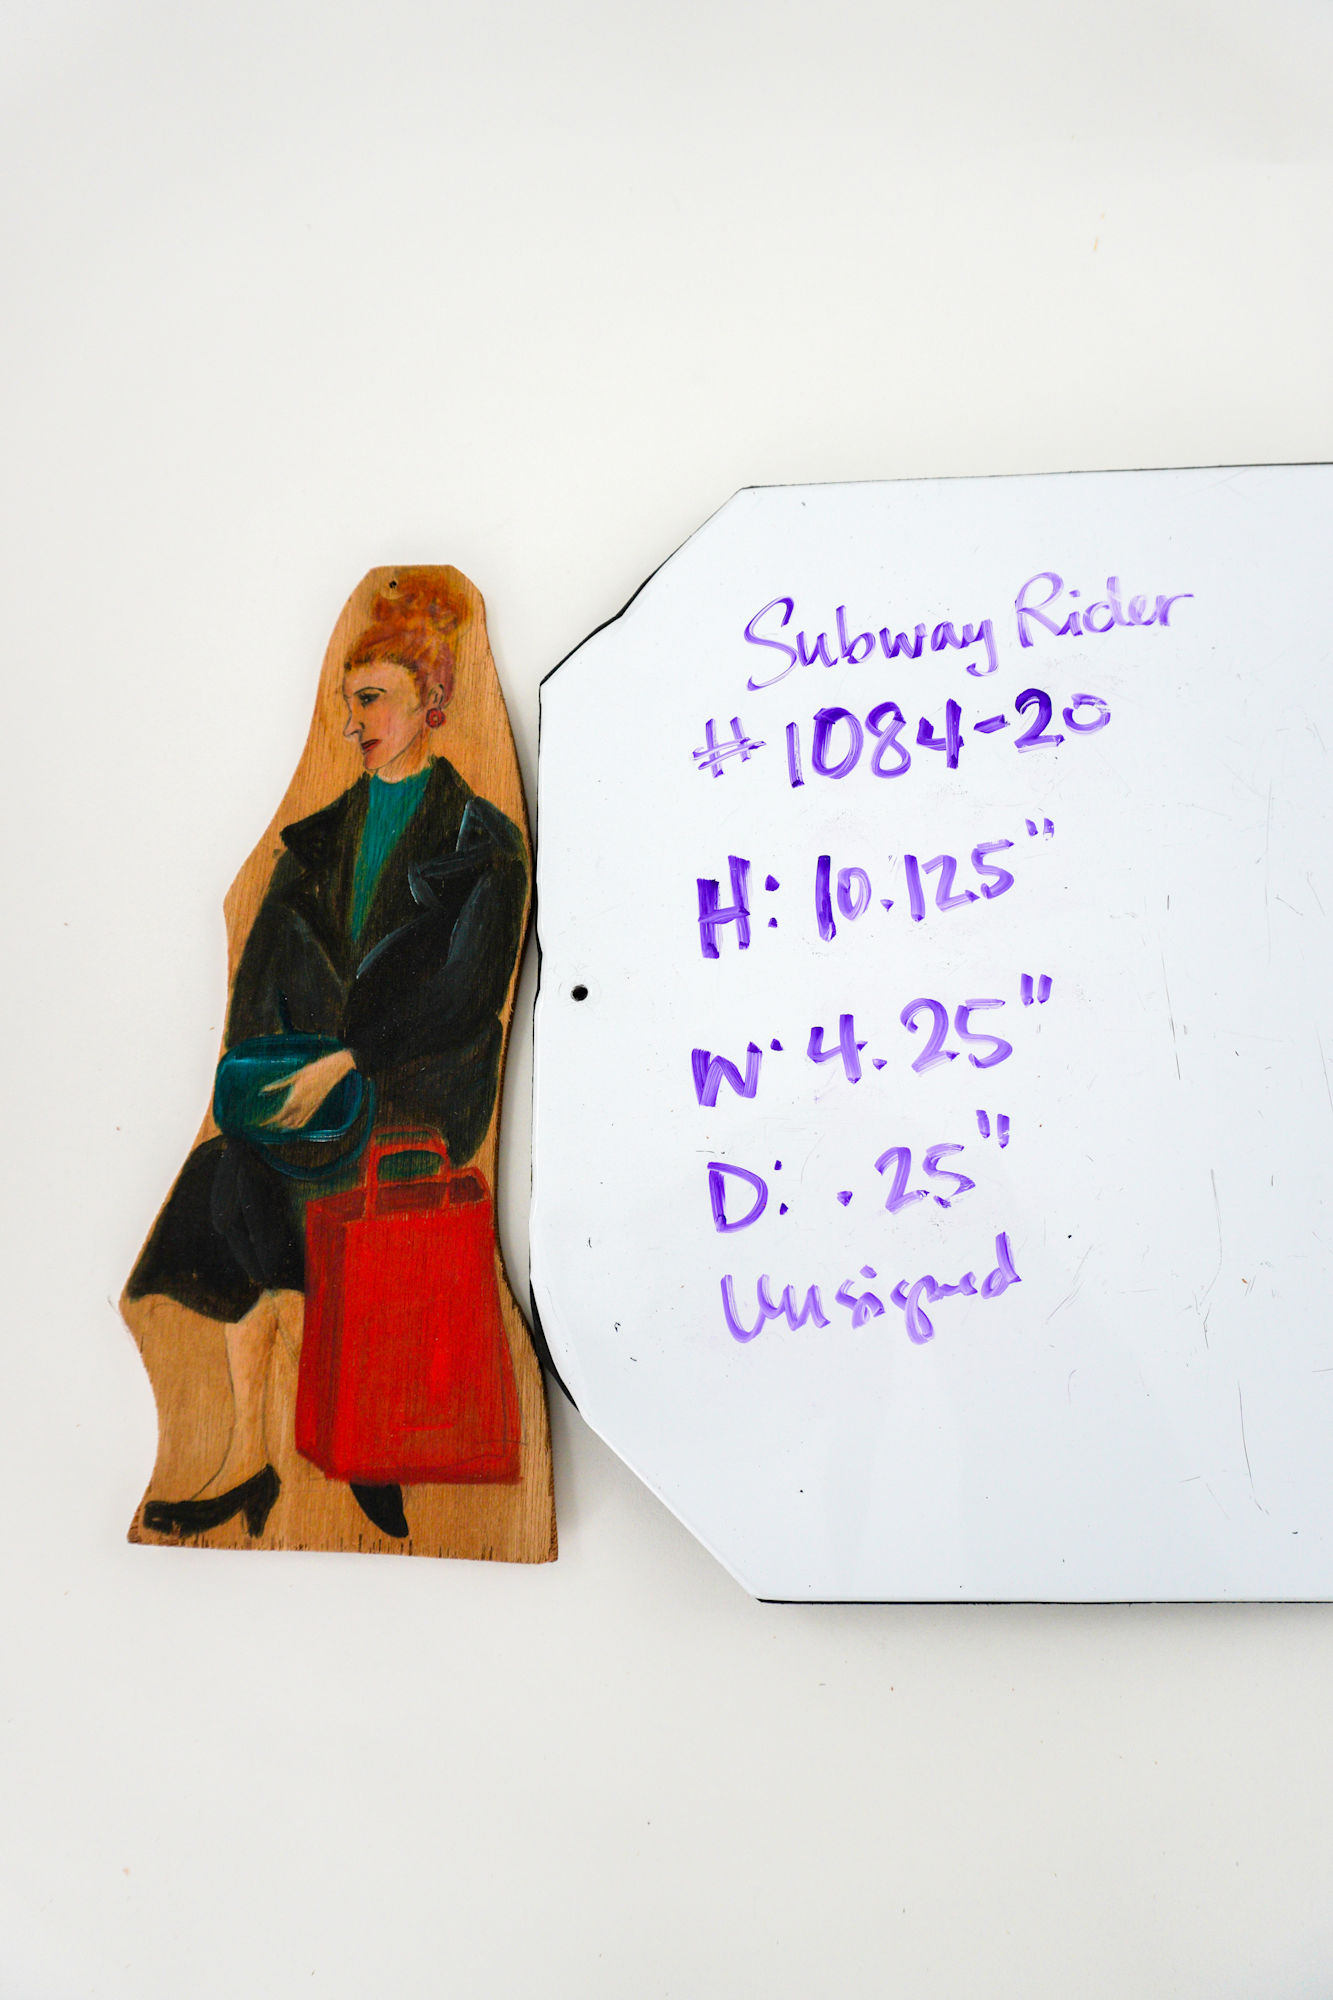 Subway Rider
#1084-20
H: 10.125"
W: 4.25"
D: .25"
Unsigned